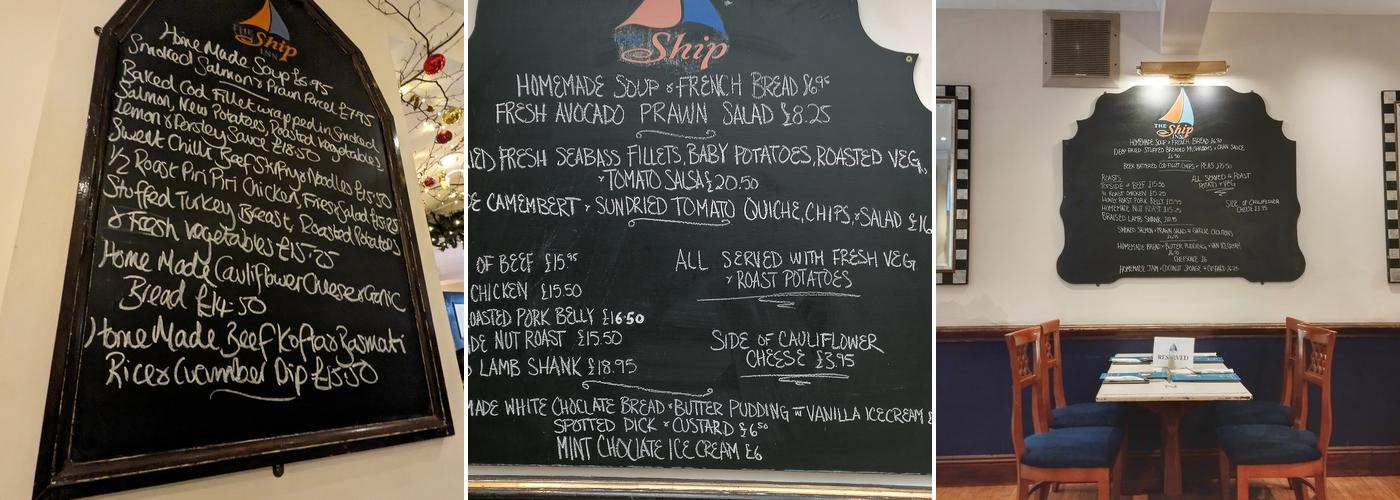 THE
Ship
INN
Home Made Soup £5.95
Smoked Salmon & Prawn Parcel £7.95
Baked Cod Fillet wrapped in Smoked
Salmon, New Potatoes, Roasted Vegetables
Lemon & Parsley Sauce £18.50
Sweet Chilli Beef Stirfry & Noodles £15.50
1/2 Roast Piri Piri Chicken, Fries & Salad
Stuffed Turkey Breast, Roasted Potatoes
& Fresh Vegetables £15.25
Home Made Cauliflower Cheese & Garlic
Bread £14.50
Home Made Beef Kofta & Basmati
Rice & Cucumber Dip £15.50
Ship
HOMEMADE SOUP & FRENCH BREAD £6.95
FRESH AVOCADO PRAWN SALAD £8.25
FRESH SEABASS FILLETS, BABY POTATOES, ROASTED VEG,
& TOMATO SALSA £20.50
CAMEMBERT & SUNDRIED TOMATO QUICHE, CHIPS, & SALAD £16
OF BEEF £15.95
CHICKEN £15.50
OASTED PORK BELLY £16.50
DE NUT ROAST £15.50
LAMB SHANK £18.95
ALL SERVED WITH FRESH VEG
& ROAST POTATOES
SIDE OF CAULIFLOWER
CHEESE £3.95
MADE WHITE CHOCLATE BREAD & BUTTER PUDDING & VANILLA ICECREAM £
SPOTTED DICK & CUSTARD £6.50
MINT CHOCLATE ICE CREAM £6
THE
Ship
INN
HOMEMADE SOUP & FRENCH BREAD £6.90
DEEP FRIED STUFFED BREADED MUSHROOMS &
£6.50
BEER BATTERED COD FILLET, CHIPS & PEAS £15.50
ROASTS
TOPSIDE OF BEEF £15.50
1/4 ROAST CHICKEN £15.25
HONEY ROAST PORK BELLY
HOMEMADE NUT ROAST £15.25
BRAISED LAMB SHANK
ALL SERVED & ROAST
POTATO & VEG
SIDE OF CAULIFLOWER
CHEESE £3.95
SMOKED SALMON & PRAWN SALAD
HOMEMADE BREAD & BUTTER PUDDING & VAN ICECREAM
CHEESCAKE £6
HOMEMADE JAM & COCONUT SPONGE & CUSTARD £6.25
RESERVED